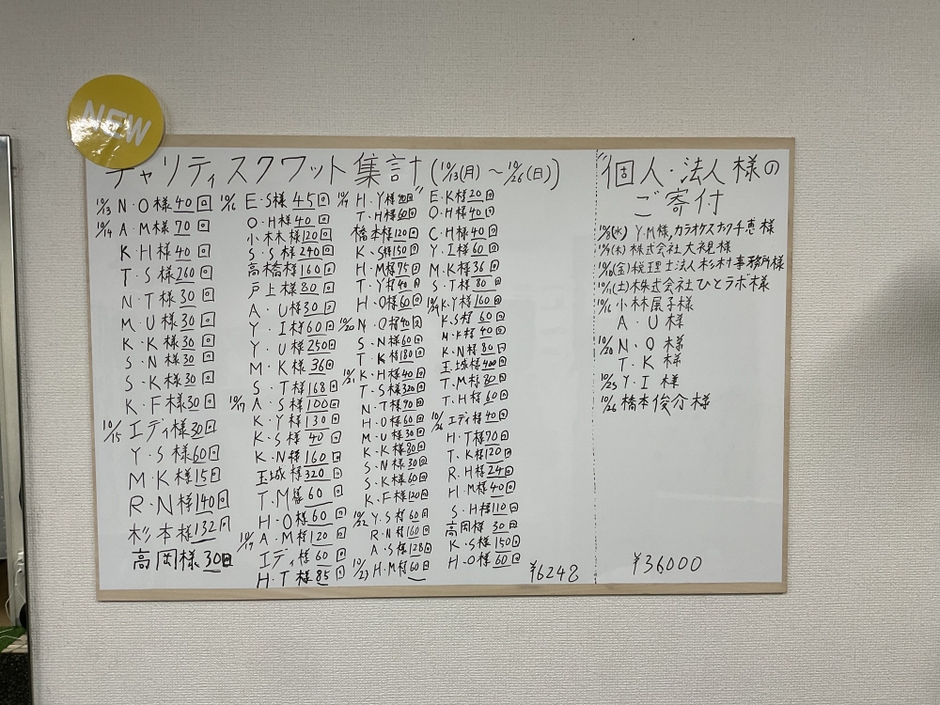 NEW
チャリティスクワット集計 (10/13(月)～10/26(日))
10/13 N・O様40回
10/14 A・M様70回
K・H様40回
T・S様260回
N・T様30回
M・U様30回
K・K様30回
S・N様30回
S・K様30回
K・F様30回
10/15 エディ様30回
Y・S様60回
M・K様15回
R・N様140回
杉本様132回
高岡様30回
10/16 E・S様45回
O・H様40回
小林様120回
S・S様240回
高橋様160回
戸上様80回
A・U様30回
Y・I様60回
Y・U様250回
M・K様36回
S・T様168回
10/17 A・S様100回
K・Y様130回
K・S様40回
K・N様160回
玉城様320回
T・M様60回
H・O様60回
10/19 A・M様120回
エディ様60回
H・T様85回
H・Y様 回
T・H様60回
橋本様120回
K・S様150回
H・M様75回
T・Y様40回
H・O様60回
10/20 N・O様40回
S・N様60回
T・K様180回
10/21 K・H様40回
T・S様320回
N・T様70回
H・O様60回
M・U様30回
K・K様30回
S・N様30回
S・K様60回
K・F様120回
10/22 Y・S様60回
R・N様160回
A・S様128回
10/23 H・M様60回
E・K様20回
O・H様40回
C・H様40回
Y・I様60回
M・K様36回
S・T様80回
10/24 K・Y様160回
K・S様60回
M・K様40回
K・N様80回
玉城様400回
T・M様80回
T・H様60回
10/26 エディ様40回
H・T様70回
T・K様120回
R・H様24回
H・M様40回
S・H様110回
高岡様30回
K・S様150回
H・O様60回
¥6248
個人・法人様の
ご寄付
(水) Y.M様,カラオケスナック千恵様
(木) 株式会社大視様
(金) 税理士法人杉村事務所様
(土) 株式会社ひとラボ様
10/16 小林展子様
A・U様
10/20 N・O様
T・K様
10/25 Y・I様
10/26 橋本俊介様
¥36000